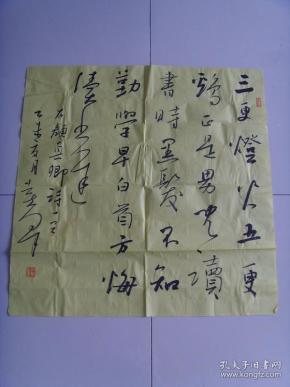 三更燈火五更
鷄正是男兒讀
書時黑髮不知
勤學早白首方悔
讀書遲
右顏真卿詩一首
夏月
孔夫子旧书网